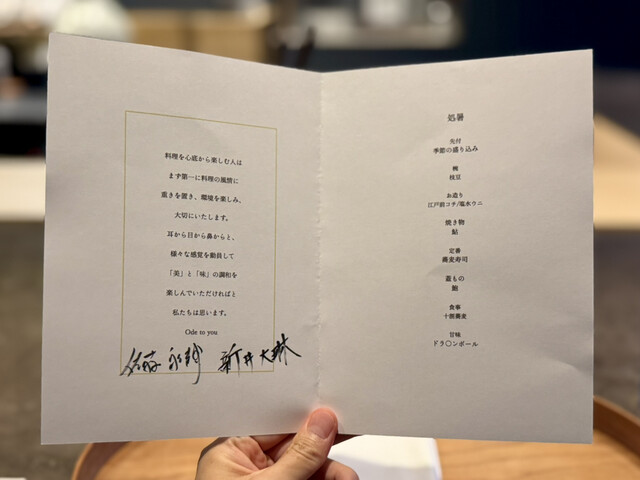 料理を心底から楽しむ人は
まず第一に料理の風情に
重きを置き、環境を楽しみ、
大切にいたします。
耳から目から鼻からと、
様々な感覚を動員して
「美」と「味」の調和を
楽しんでいただければと
私たちは思います。
Ode to you
新井大琳
処暑
先付
季節の盛り込み
椀
枝豆
お造り
江戸前コチ/塩水ウニ
焼き物
鮎
定番
蕎麦寿司
蓋もの
鮑
食事
十割蕎麦
甘味
ドラ〇ンボール